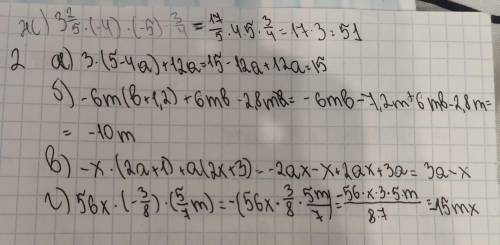 ж) 3 2/5 · (-4) · (-5) · 3/4 = 17/5 · 4 · 5 · 3/4 = 17 · 3 = 51
2 а) 3 · (5-4a) + 12a = 15 - 12a + 12a = 15
б) -6m(b+1,2) + 6mb - 2,8m = -6mb - 7,2m + 6mb - 2,8m =
= -10m
в) -x · (2a+1) + a(2x+3) = -2ax - x + 2ax + 3a = 3a - x
г) 56x · (-3/8) · (5/7 m) = -(56x · 3/8 · 5m/7) = -56·x·3·5·m/8·7 = -15mx